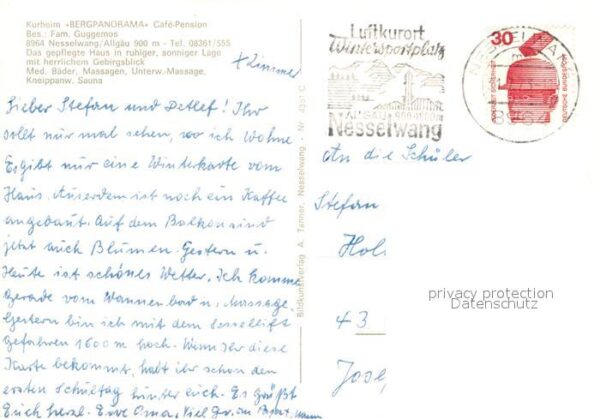 Kurheim »BERGPANORAMA« Café-Pension
Bes.: Fam. Guggemos
8964 Nesselwang/Allgäu 900 m - Tel. 08361/555
Das gepflegte Haus in ruhiger, sonniger Lage
mit herrlichem Gebirgsblick
Med. Bäder, Massagen, Unterw.-Massage,
Kneippanw. Sauna
+ Zimmer
Lieber Stefan und Detlef! Ihr
sollt nur mal sehen, wo ich wohne.
Es gibt nur eine Winterkarte vom
Haus. Ausserdem ist noch ein Kaffee
angebaut. Auf dem Balkon sind
jetzt auch Blumen. Gestern u.
Heute ist schönes Wetter. Ich komme
gerade vom Wannenbad u. Massage.
Gestern bin ich mit dem Sessellift
gefahren 1600 m hoch. Wenn Ihr diese
Karte bekommt, habt ihr schon den
ersten Schultag hinter euch. Es grüßt
Euch herzl. Eure Oma. Viel
Bildkunstverlag A. Tanner, Nesselwang - Nr. 4351 C
Luftkurort
Wintersportplatz
ALLGÄU 900-1600m
Nesselwang
NESSELWANG
8964
30
DEUTSCHE BUNDESPOST
An die Schüler
Stefan
Hols
43
Jose
privacy protection
Datenschutz